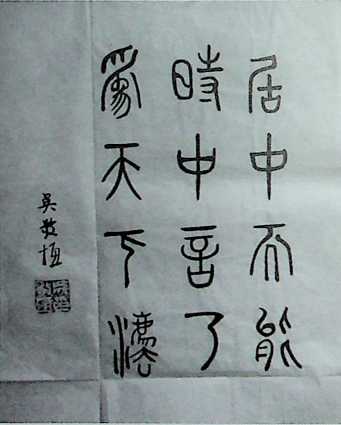 居中不能
時中言了
為天下灋
吳敬恆